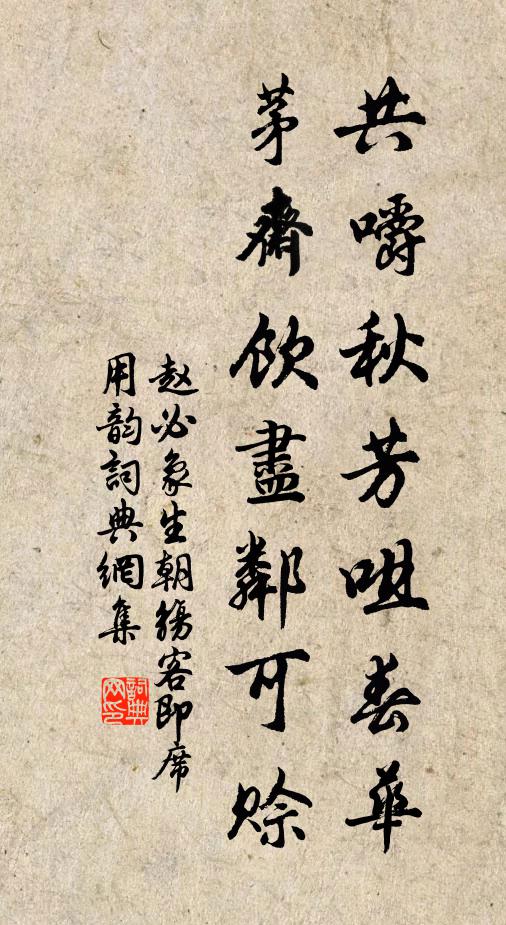 共嚼秋芳咀春華
茅齋飲盡鄰可赊
赵必象生朝觴客即席
用韵詞典網集
詞典
网印